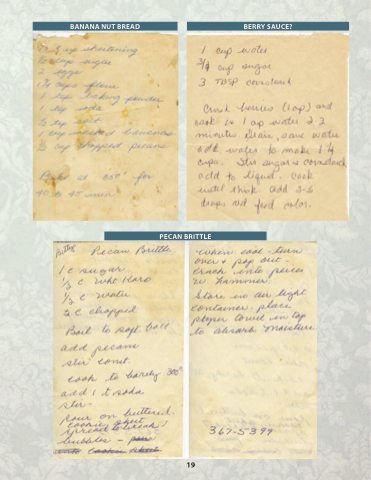 BANANA NUT BREAD
cup shortening
cup sugar
2 eggs
cups flour
1 tsp baking powder
1 tsp soda
tsp salt
1 cup mashed bananas
cup chopped pecans
Bake at 350° for
40 to 45 min.
BERRY SAUCE?
1 cup water
3/4 cup sugar
3 TBSP cornstarch
Crush berries (1 cup) and
cook in 1 cup water 2
minutes. Drain, save water
add water to make 1 1/4
cups. Stir sugar & cornstarch
add to liquid. cook
until thick. add 3-6
drops red food color.
PECAN BRITTLE
Pecan Brittle
1 C sugar
1/2 C Wht Karo
1/2 C water
2 C chopped
Boil to soft ball
add pecans
stir const.
cook to barely 300°
add 1 t soda
stir -
pour on buttered
cookie sheet
spread to break
bubbles -
when cool - turn
over & pop out -
crack into pieces
w hammer.
Store in air tight
container - place
paper towel in top
to absorb moisture
367-5399
19